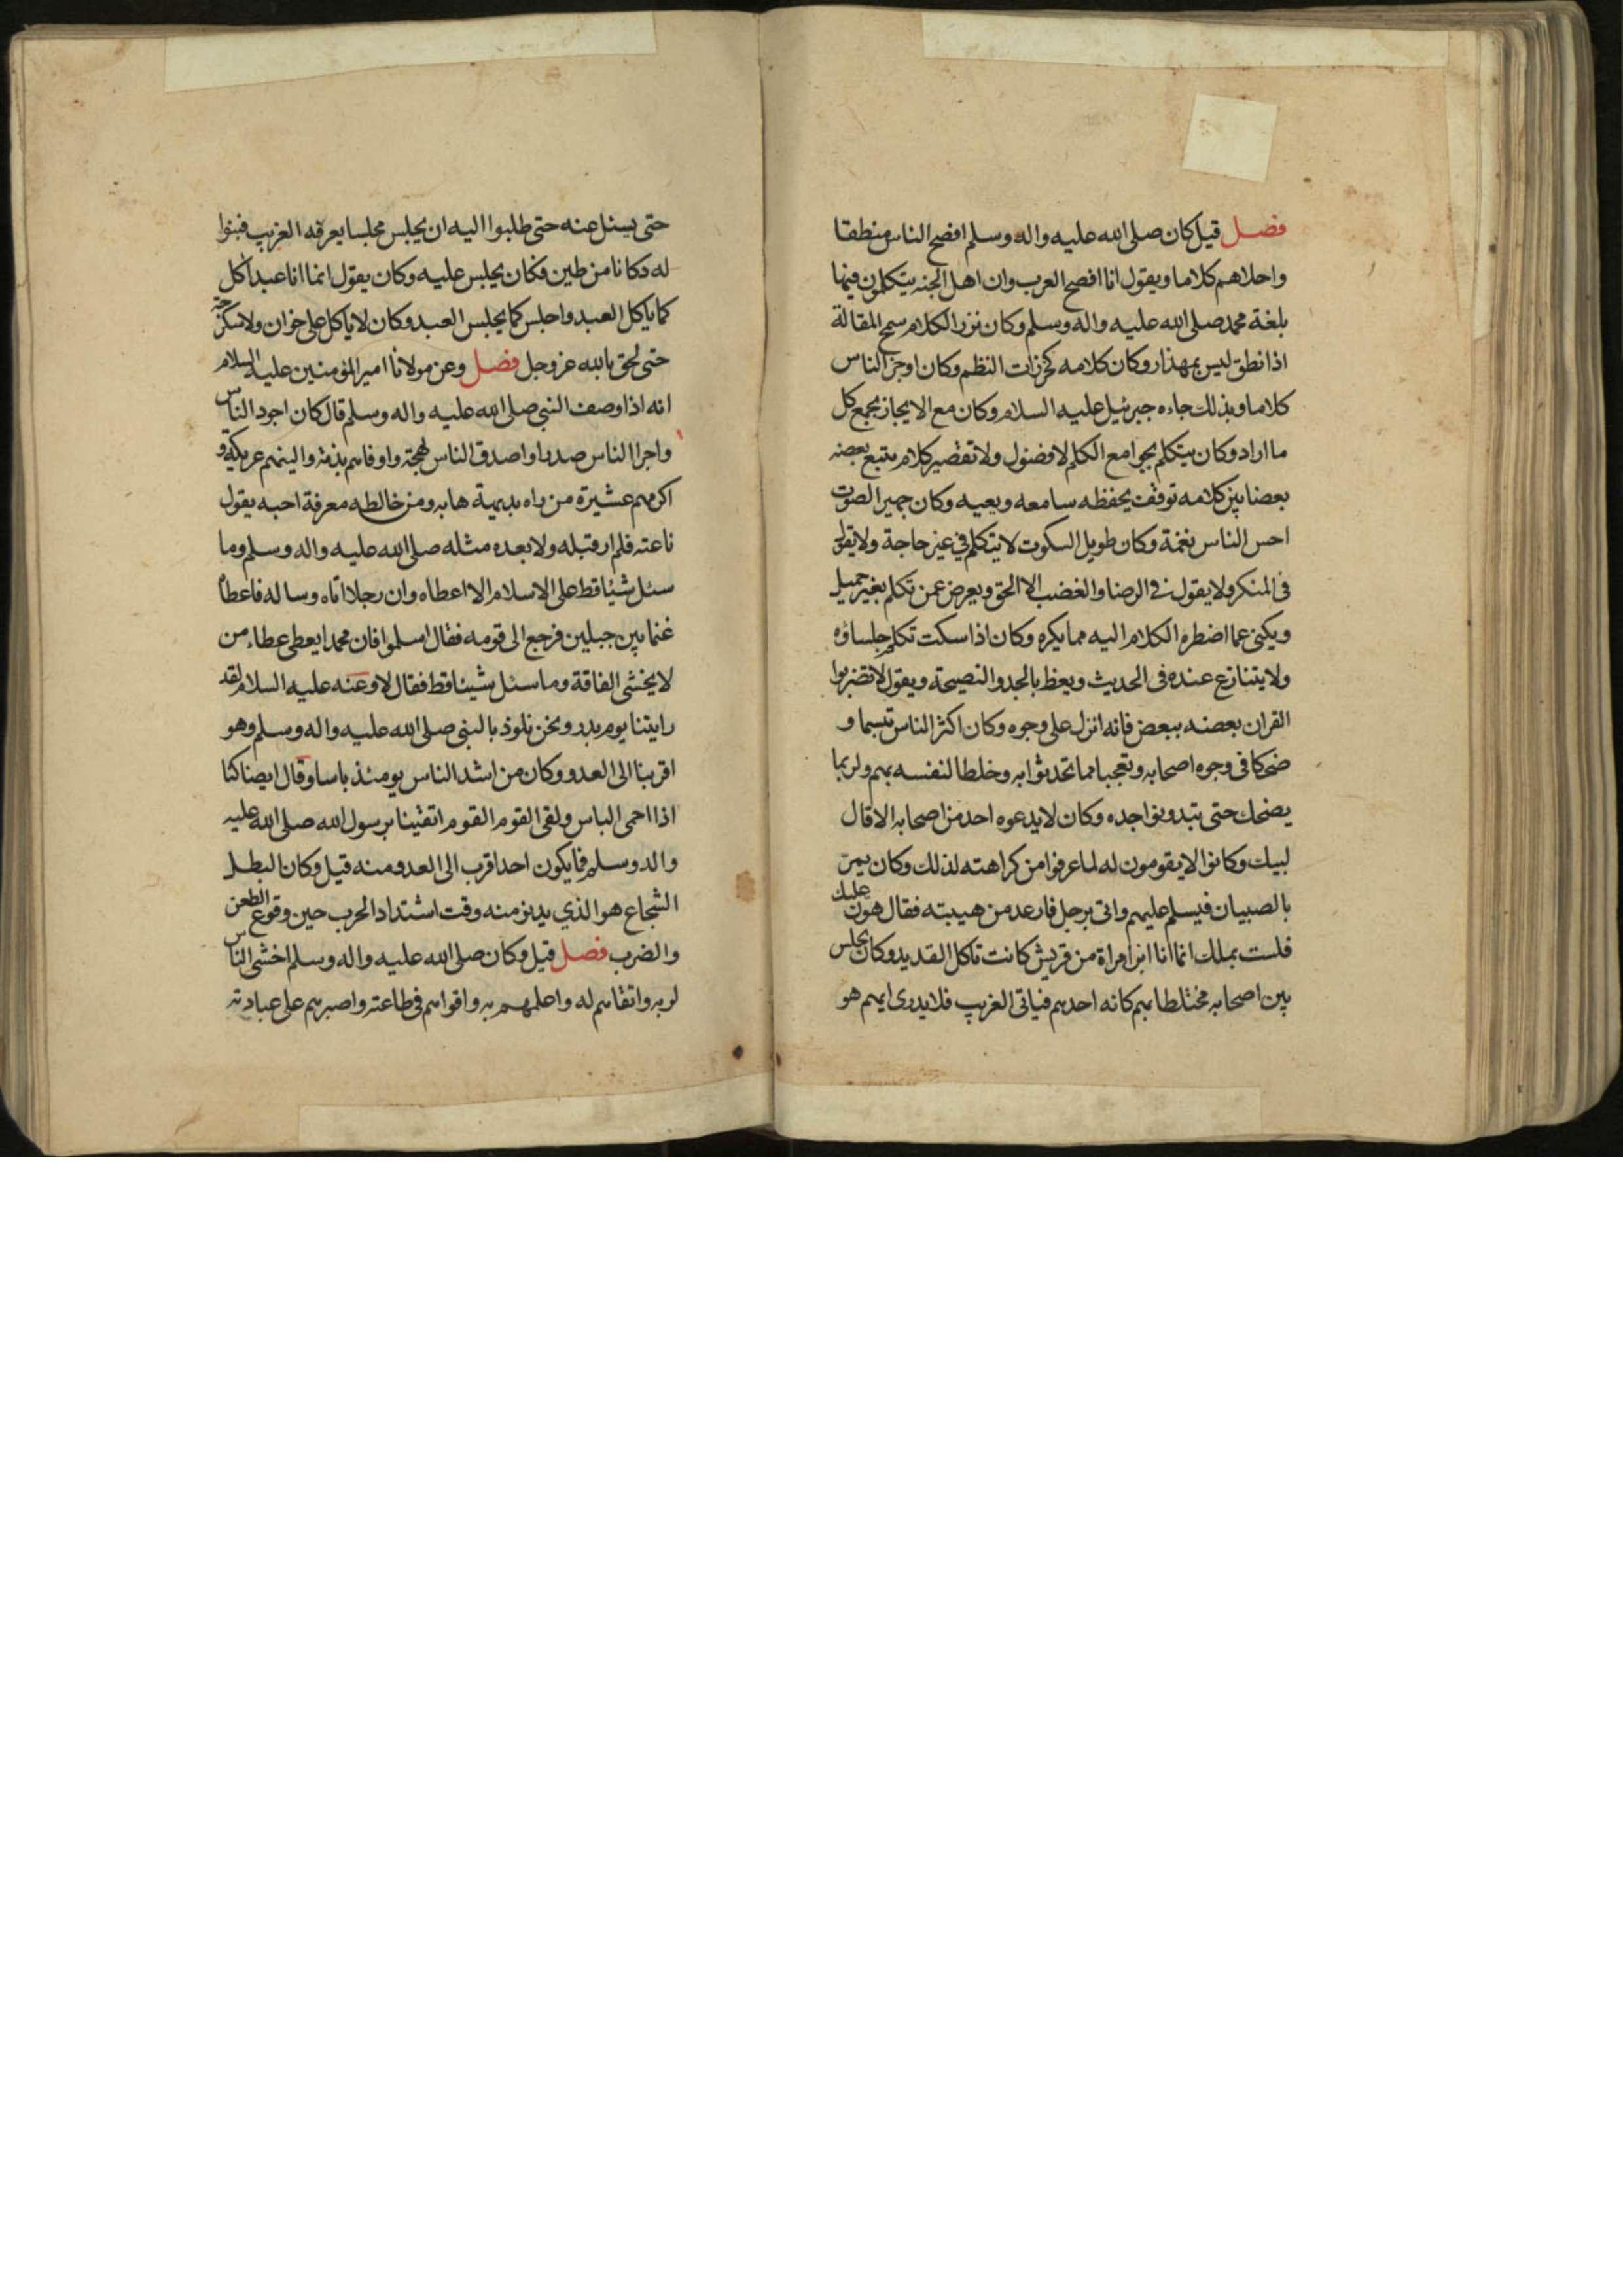 فصل قيل كان صلى الله عليه واله وسلم افصح الناس منطقا
واحلاهم كلاما ويقول انا افصح العرب وان اهل الجنه يتكلمون فيها
بلغة محمد صلى الله عليه واله وسلم وكان نزر الكلام سمح المقالة
اذا نطق ليس بمهذار وكان كلامه كخرزات النظم وكان اوجز الناس
كلاما وبذلك جاءه جبرئيل عليه السلام وكان مع الايجاز يجمع كل
ما اراد وكان يتكلم بجوامع الكلم لا فضول ولا تقصير كلام يتبع بعضه
بعضا بين كلامه توقف يحفظه سامعه ويعيه وكان جهير الصوت
احس الناس نغمة وكان طويل السكوت لا يتكلم في غير حاجة ولا يقول
فى المنكر ولا يقول فى الرضا والغضب الا الحق ويعرض عمن تكلم بغير جميل
ويكنى عما اضطره الكلام اليه مما يكره وكان اذا سكت تكلم جلساؤه
ولا يتنازع عنده فى الحديث ويعظ بالجد والنصيحة ويقول لا تضربوا
القران بعضه ببعض فانه انزل على وجوه وكان اكثر الناس تبسما و
ضحكا فى وجوه اصحابه وتعجبا مما تحدثوا به وخلطا لنفسه بهم ولربما
يضحك حتى تبدو نواجده وكان لا يدعوه احد من اصحابه الا قال
لبيك وكانوا لا يقومون له لما عرفوا من كراهته لذلك وكان يمر
بالصبيان فيسلم عليهم واتى برجل فارعد من هيبته فقال هون عليك
فلست بملك انما انا ابن امراة من قريش كانت تاكل القديد وكان يجلس
بين اصحابه مختلطا بهم كانه احدهم فياتى الغريب فلا يدرى ايهم هو
حتى يسئل عنه حتى طلبوا اليه ان يجلس مجلسا يعرفه الغريب فبنوا
له دكانا من طين فكان يجلس عليه وكان يقول انما انا عبد آكل
كما ياكل العبد واجلس كما يجلس العبد وكان لا ياكل على خوان ولا سكرجة
حتى لحق بالله عز وجل فصل وعن مولانا امير المؤمنين عليه السلام
انه اذا وصف النبي صلى الله عليه واله وسلم قال كان اجود الناس
واجرا الناس صدرا واصدق الناس لهجة واوفاهم بذمة والينهم عريكة و
اكرمهم عشيرة من راه بديهية هابه ومن خالطه معرفة احبه يقول
ناعته فلم ار قبله ولا بعده مثله صلى الله عليه واله وسلم وما
سئل شيئا قط على الاسلام الا اعطاه وان رجلا اتاه وساله فاعطاه
غنما بين جبلين فرجع الى قومه فقال اسلموا فان محمدا يعطى عطاء من
لا يخشى الفاقة وما سئل شيئا قط فقال لا وعنه عليه السلام لقد
رايتنا يوم بدر ونحن نلوذ بالنبى صلى الله عليه واله وسلم وهو
اقربنا الى العدو وكان من اشد الناس يومئذ باسا وقال ايضا كنا
اذا احمى الباس ولقى القوم القوم اتقينا برسول الله صلى الله عليه
واله وسلم فما يكون احد اقرب الى العدو منه قيل وكان البطل
الشجاع هو الذي يدنو منه وقت اشتداد الحرب حين وقوع الطعن
والضرب فصل قيل وكان صلى الله عليه واله وسلم اخشى الناس
لربه واتقاهم له واعلمهم به واقواهم فى طاعته واصبرهم على عبادته